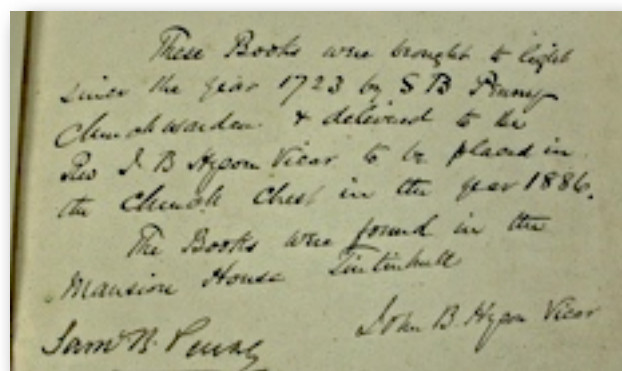 These Books were brought to light
since the year 1723 by S B Penny
Churchwarden & delivered to the
Rev J. B Hyson Vicar to be placed in
the Church Chest in the year 1886.
The Books were found in the
Mansion House Tintinhull
John B. Hyson Vicar
Saml B. Penny